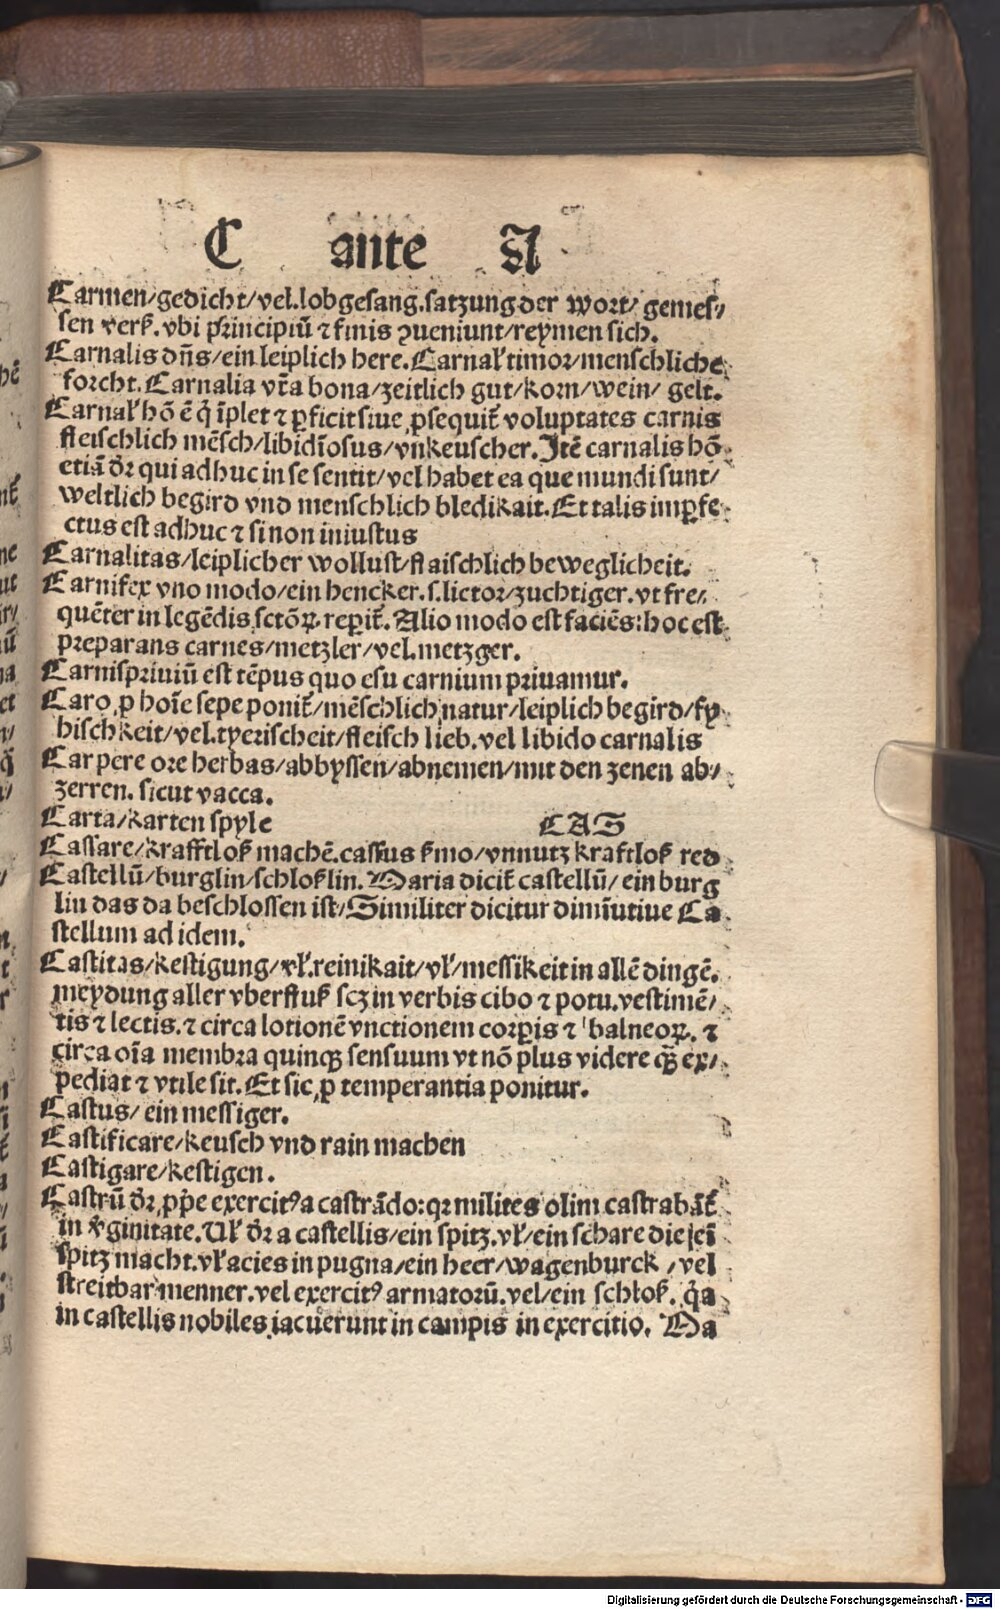 C ante A
Carmen/gedicht/vel.lobgesang.satzung der wort/ gemes/
sen verß.vbi principiū ⁊ finis ꝯueniunt/reymen sich.
Carnalis dñs/ein leiplich here.Carnal' timor/menschliche
forcht.Carnalia vl'ia bona/zeitlich gut/korn/wein/ gelt.
Carnal' hō ē q̇ īplet ⁊ ꝑficit siue ꝓsequit͛ voluptates carnis
fleischlich mēsch/libidīosus/vnkeuscher.Jtē carnalis hō
etiā dr̄ qui adhuc in se sentit/vel habet ea que mundi sunt/
weltlich begird vnd menschlich bledikait.Et talis imꝑfe
ctus est adhuc ⁊ si non iniustus
Carnalitas/leiplicher wollust/flaischlich beweglicheit.
Carnifex vno modo/ein hencker.s.lictor/zuchtiger.vt fre/
quēter in legēdis sctōꝝ.reꝑit͛.Alio modo est faciēs:hoc est
preparans carnes/metzler/vel.metzger.
Carnispriuiū est tēpus quo esu carnium priuamur.
Caro ꝓ hoīe sepe ponit͛/mēschlich natur/leiplich begird/fy
hischkeit/vel.tyerischeit/fleisch lieb.vel libido carnalis
Carpere ore herbas/abbyssen/abnemen/mit den zenen ab/
zerren. sicut vacca.
Carta/karten spyle
CAS
Cassare/krafftloß machē.cassus ßmo/vnnutz kraftloß red
Castellū/burglin/schloßlin.Maria dicit͛ castellū/ ein burg
lin das da beschlossen ist/Similiter dicitur dimīutiue Ca
stellum ad idem.
Castitas/kestigung/vl'.reinikait/vl'/messikeit in allē dingē.
meydung aller vberfluß scꝫ in verbis cibo ⁊ potu.vestimē/
tis ⁊ lectis.⁊ circa lotionē vnctionem corꝑis ⁊ balneoꝝ. ⁊
circa oīa membra quinqꝫ sensuum vt nō plus videre q̄ꝫ ex/
pediat ⁊ vtile sit.Et sic ꝓ temperantia ponitur.
Castus/ ein messiger.
Castificare/keusch vnd rain machen
Castigare/kestigen.
Castrū dr̄ ꝓpͥe exercitꝰ a castrādo:qꝛ milites olim castrabāt͛
in v͛ginitate.Ul' dr̄ a castellis/ein spitz.vl'/ein schare die sei
spitz macht.vl' acies in pugna/ein heer/wagenburck /vel
streitbar menner.vel exercitꝰ armatorū.vel/ein schloß. q̇a
in castellis nobiles iacuerunt in campis in exercitio. Ma
Digitalisierung gefördert durch die Deutsche Forschungsgemeinschaft - DFG